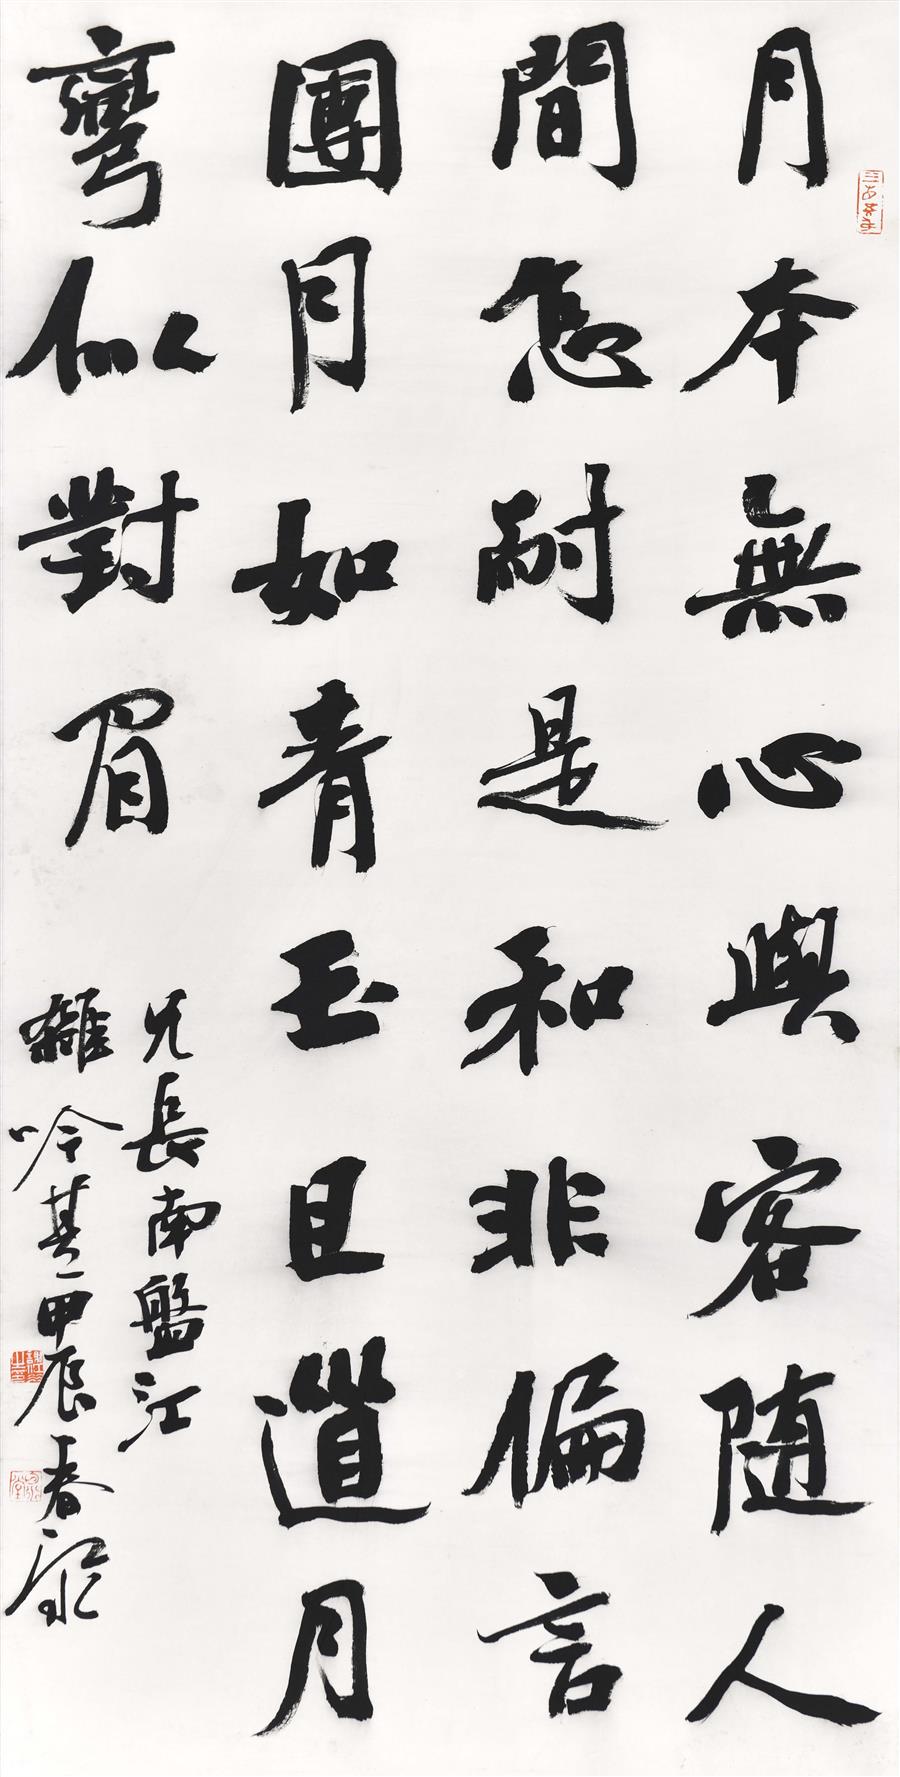 月本無心與客随人
間怎耐是和非偏言
團月如青玉且道月
彎似對眉
兄長南盤江
雜吟其一甲辰春